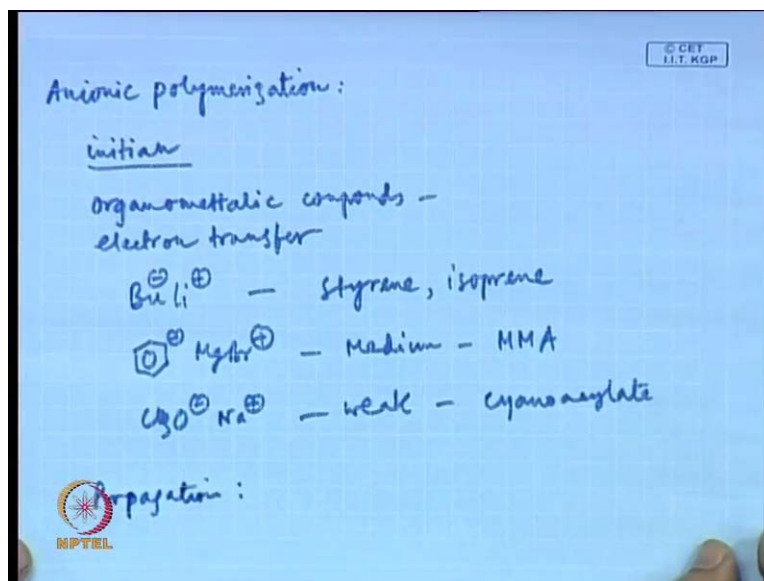 © CET
I.I.T. KGP
Anionic polymerization:
initian
organomettalic componds -
electron transfer
Bu⊖ Li⊕ - styrene, isoprene
⊖ MgBr⊕ - Medium - MMA
CH3O⊖ Na⊕ - weak - cyanoacylate
Propagation:
NPTEL